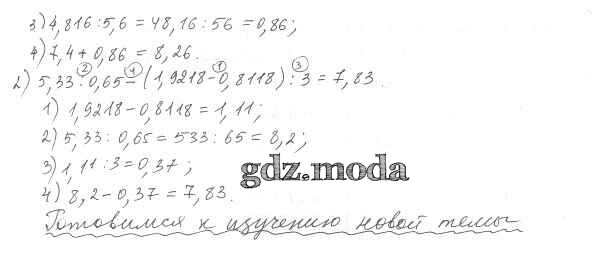 3) 4,816 : 5,6 = 48,16 : 56 = 0,86;
4) 7,4 + 0,86 = 8,26.
2) 5,33 : 0,65 - (1,9218 - 0,8118) : 3 = 7,83.
2 4 1 3
1) 1,9218 - 0,8118 = 1,11;
2) 5,33 : 0,65 = 533 : 65 = 8,2;
3) 1,11 : 3 = 0,37;
gdz.moda
4) 8,2 - 0,37 = 7,83.
Готовимся к изучению новой темы